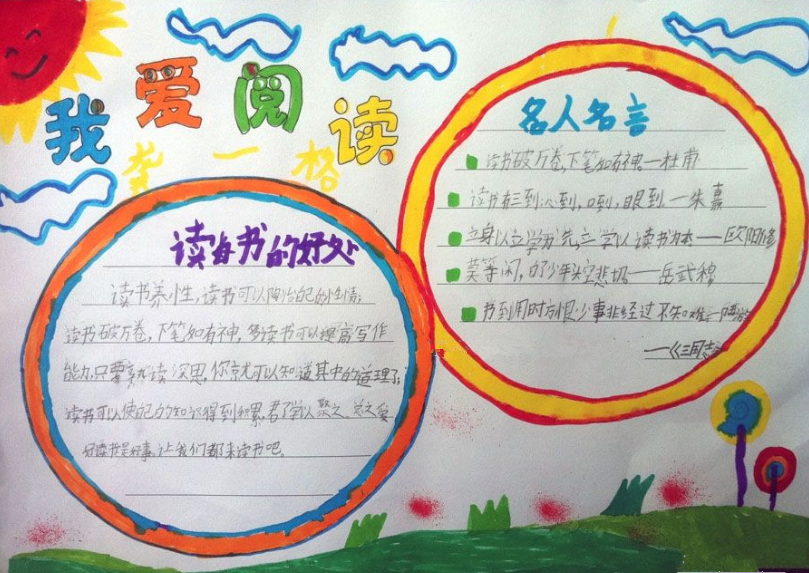 我爱阅读
龚一格
读书的好处
读书养性，读书可以陶冶自己的性情；
读书破万卷，下笔如有神，多读书可以提高写作
能力，只要熟读深思，你就可以知道其中的道理了；
读书可以使自己的知识得到积累，君子学以聚之。总之爱
好读书是好事，让我们都来读书吧。
名人名言
读书破万卷，下笔如有神。—杜甫
读书有三到，心到，口到，眼到。—朱熹
立身以立学为先，立学以读书为本——欧阳修
莫等闲，白了少年头，空悲切——岳武穆
书到用时方恨少事非经过不知难—陆游
—《三国志》